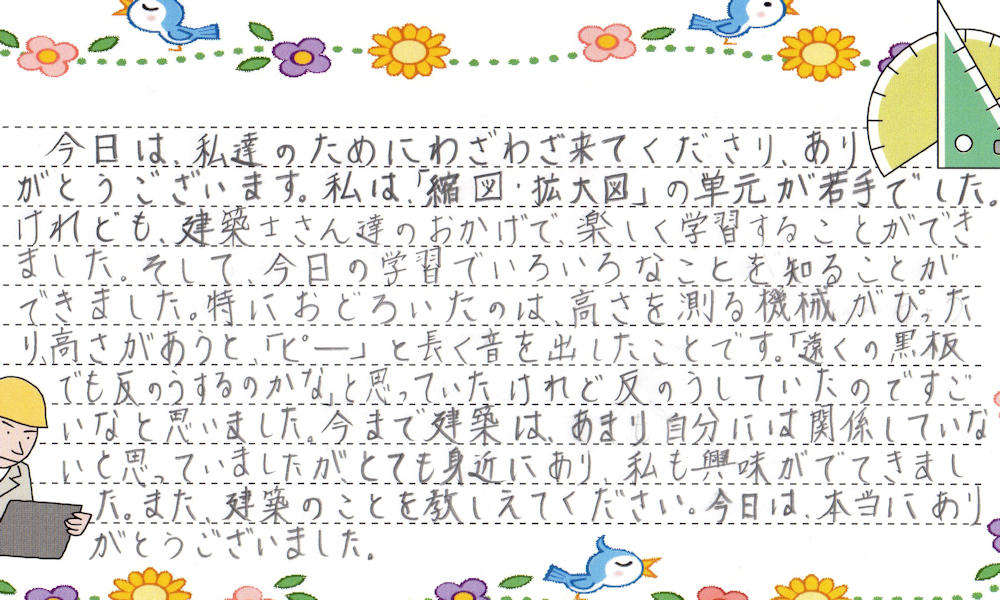 今日は、私達のためにわざわざ来てくださり、あり
がとうございます。私は、「縮図・拡大図」の単元が若手でした。
けれども、建築士さん達のおかげで、楽しく学習することができ
ました。そして、今日の学習でいろいろなことを知ることが
できました。特におどろいたのは、高さを測る機械がぴった
り、高さがあうと、「ピー」と長く音を出したことです。「遠くの黒板
でも反のうするのかな」と思っていたけれど反のうしていたのですご
いなと思いました。今まで建築は、あまり自分には関係していな
いと思っていましたが、とても身近にあり、私も興味がでてきまし
た。また、建築のことを教しえてください。今日は、本当にあり
がとうございました。